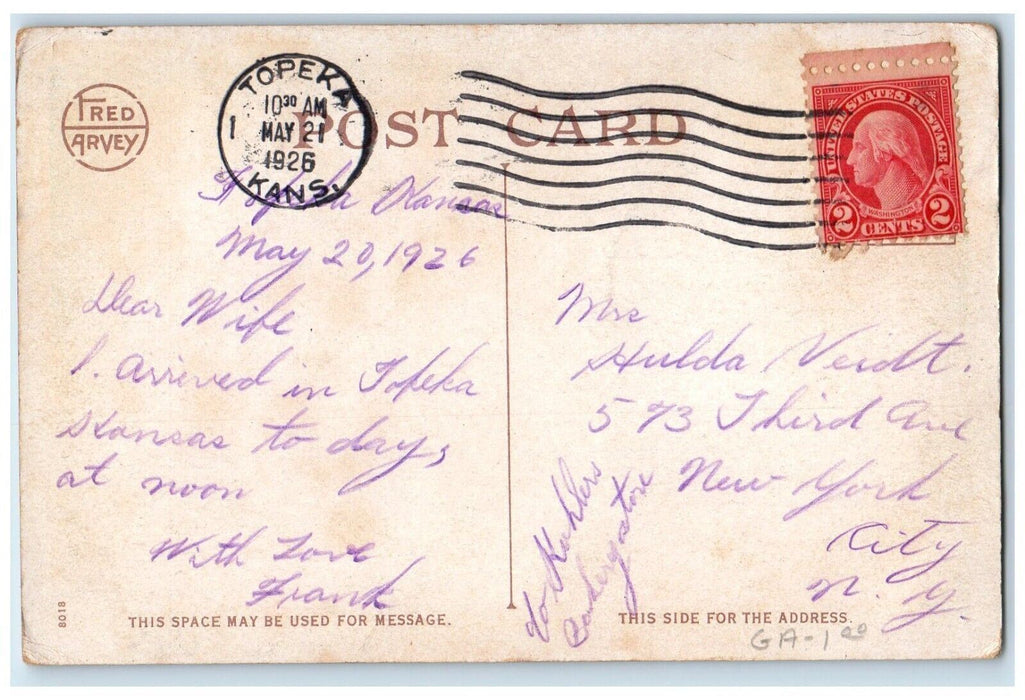 FRED
HARVEY
TOPEKA
10 30 AM
1 MAY 21
1926
KANS.
POST CARD
UNITED STATES POSTAGE
WASHINGTON
2 CENTS 2
Topeka Kansas
May 20, 1926
Dear Wife
I. Arrived in Topeka
Kansas to day,
at noon
With Love
Frank
8018
THIS SPACE MAY BE USED FOR MESSAGE.
Mrs
Hulda Veidt.
573 Third Ave
New York
City
N. Y.
Kohlers
store
THIS SIDE FOR THE ADDRESS.
GA-1 00